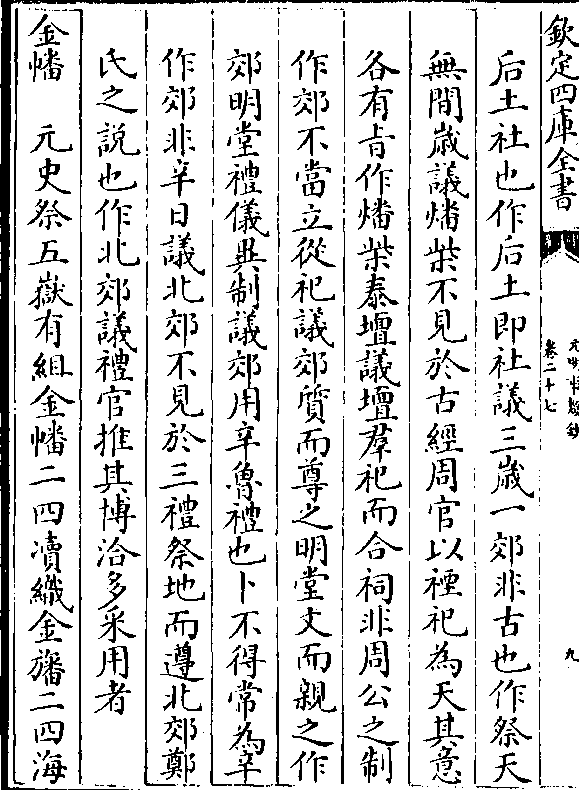 欽定四庫全書
元明事類鈔
卷二十七
九
后土社也作后土即社議三歲一郊非古也作祭天
無間歲議燔柴不見於古經周官以禋祀為天其意
各有㫖作燔柴泰壇議壇羣祀而合祠非周公之制
作郊不當立從祀議郊質而尊之明堂文而親之作
郊明堂禮儀異制議郊用辛魯禮也卜不得常為辛
作郊非辛日議北郊不見於三禮祭地而遵北郊鄭
氏之說也作北郊議禮官推其博洽多采用者
金幡　元史祭五嶽有組金幡二四凟織金旛二四海